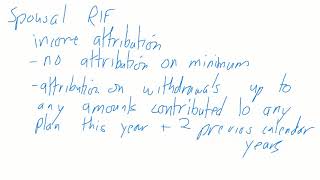 Spousal RIF
income attribution
- no attribution on minimum
- attribution on withdrawals up to
any amounts contributed to any
plan this year + 2 previous calendar
years